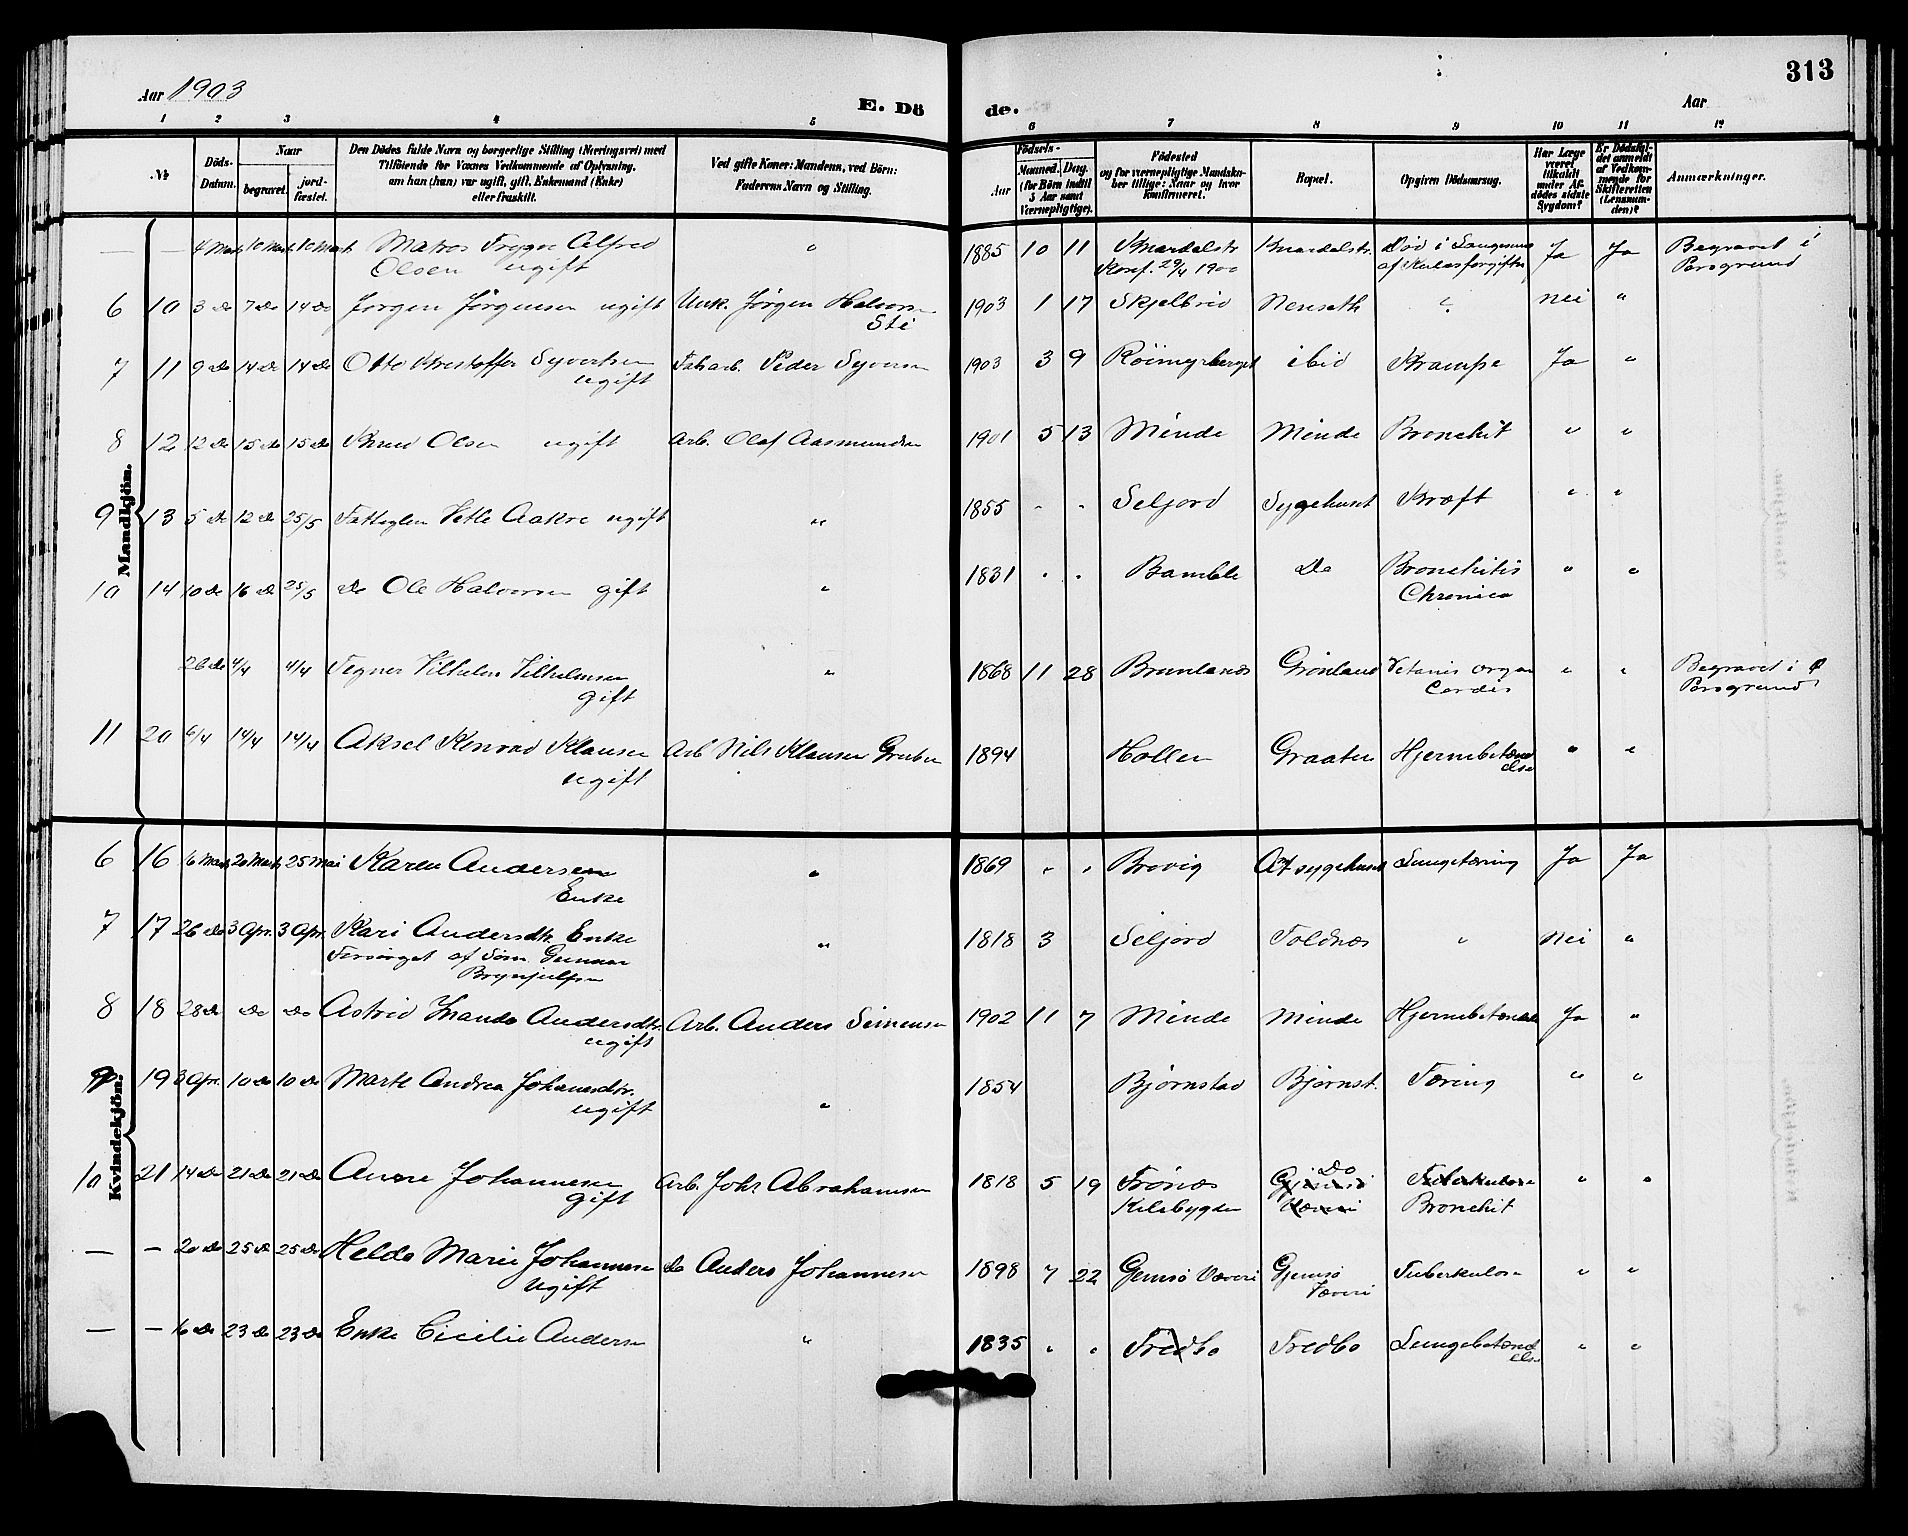 Aar 1903
E. Dö de.
Aar
313
1 2 3 4 5 6 7 8 9 10 11 12
Nr.
Döds-Datum.
Naar
begravet.
jord-fæstet.
Den Dödes fulde Navn og borgerlige Stilling (Næringsvei) med
Tilföiende for Voxnes Vedkommende af Oplysning,
om han (hun) var ugift, gift, Enkemand (Enke)
eller fraskilt.
Ved gifte Koner: Mandens, ved Börn:
Faderens Navn og Stilling.
Födsels-
Aar
Maaned. Dag.
(for Börn indtil
3 Aar samt
Værnepligtige).
Födested
og for værnepligtige Mandskaber
tillige: Naar og hvor
konfirmeret.
Bopæl.
Opgiven Dödsaarsag.
Har Læge
været
tilkaldt
under Afdödes
sidste
Sygdom?
Er Dödsfaldet
anmeldt
af Vedkommende
for
Skifteretten
(Lensmanden)?
Anmærkninger.
Mandkjön.
— — 4 Marts 10 Marts 10 Marts Matros Trygve Alfred " 1885 10 11 Knardalstr Knardalstr. Död i Langesund Ja Ja Begravet i
Olsen ugift Konf. 29/4 1900 af Kulosforgiftn Porsgrund
6 10 3 do 7 do 14 do Jørgen Jørgensen ugift Unk. Jørgen Halvorsen 1903 1 17 Skjelbred Nenseth " nei "
Sti
7 11 9 do 14 do 14 do Otto Kristoffer Syvertsen Fabarb. Peder Syversen 1903 3 9 Röimyrberget ibid Krampe Ja "
ugift
8 12 12 do 15 do 15 do Knud Olsen ugift Arb. Olaf Aasmundsen 1901 5 13 Minde Minde Bronchit " "
9 13 5 do 12 do 25/5 Fattiglem Vetle Aakre ugift " 1855 " " Seljord Sygehuset Kræft " "
10 14 10 do 16 do 25/5 do Ole Halvorsen gift " 1831 " " Bamble Do Bronchitis " "
Chronica
26 do 4/4 4/4 Tegner Vilhelm Vilhelmsen " 1868 11 28 Brunlanæs Grönland Vetanis organ " " Begravet i Ø
gift Cordis Porsgrund
11 20 6/4 14/4 14/4 Aksel Konrad Klausen Arb Nils Klausen Gruben 1894 Hollen Graaten Hjernebetænd " "
ugift else
Kvindekjön.
6 16 16 Marts 20 Marts 25 Mai Karen Andersen " 1869 " " Brevig At sygehuset Lungetæring Ja Ja
Enke
7 17 26 do 3 Apr. 3 Apr. Kari Andersdtr Enke " 1818 3 Seljord Foldnæs " nei "
Forsørget af Søn Gunnar
Brynjulfsen
8 18 28 do do do Astrid Wanda Andersdtr. Arb. Anders Simensen 1902 11 7 Minde Minde Hjernebetændelse Ja "
ugift
9 19 3 Apr. 10 do 10 do Marte Andrea Johannesdtr. " 1854 Bjørnstad Bjørnst. Tæring " "
ugift
10 21 14 do 21 do 21 do Anne Johannesen Arb. Johs Abrahamsen 1818 5 19 Trönæs Gjemsö Do Tuberkulose " "
gift Kilebygden Væveri Bronchit
— — 20 do 25 do 25 do Helda Marie Johannesen do Anders Johannesen 1898 7 22 Gemsö Væveri Gjemsö Tuberkulose " "
ugift Væveri
— — 16 do 23 do 23 do Enke Cicilie Andersen " 1835 " " Fredbo Fredbo Lungebetænd " "
else